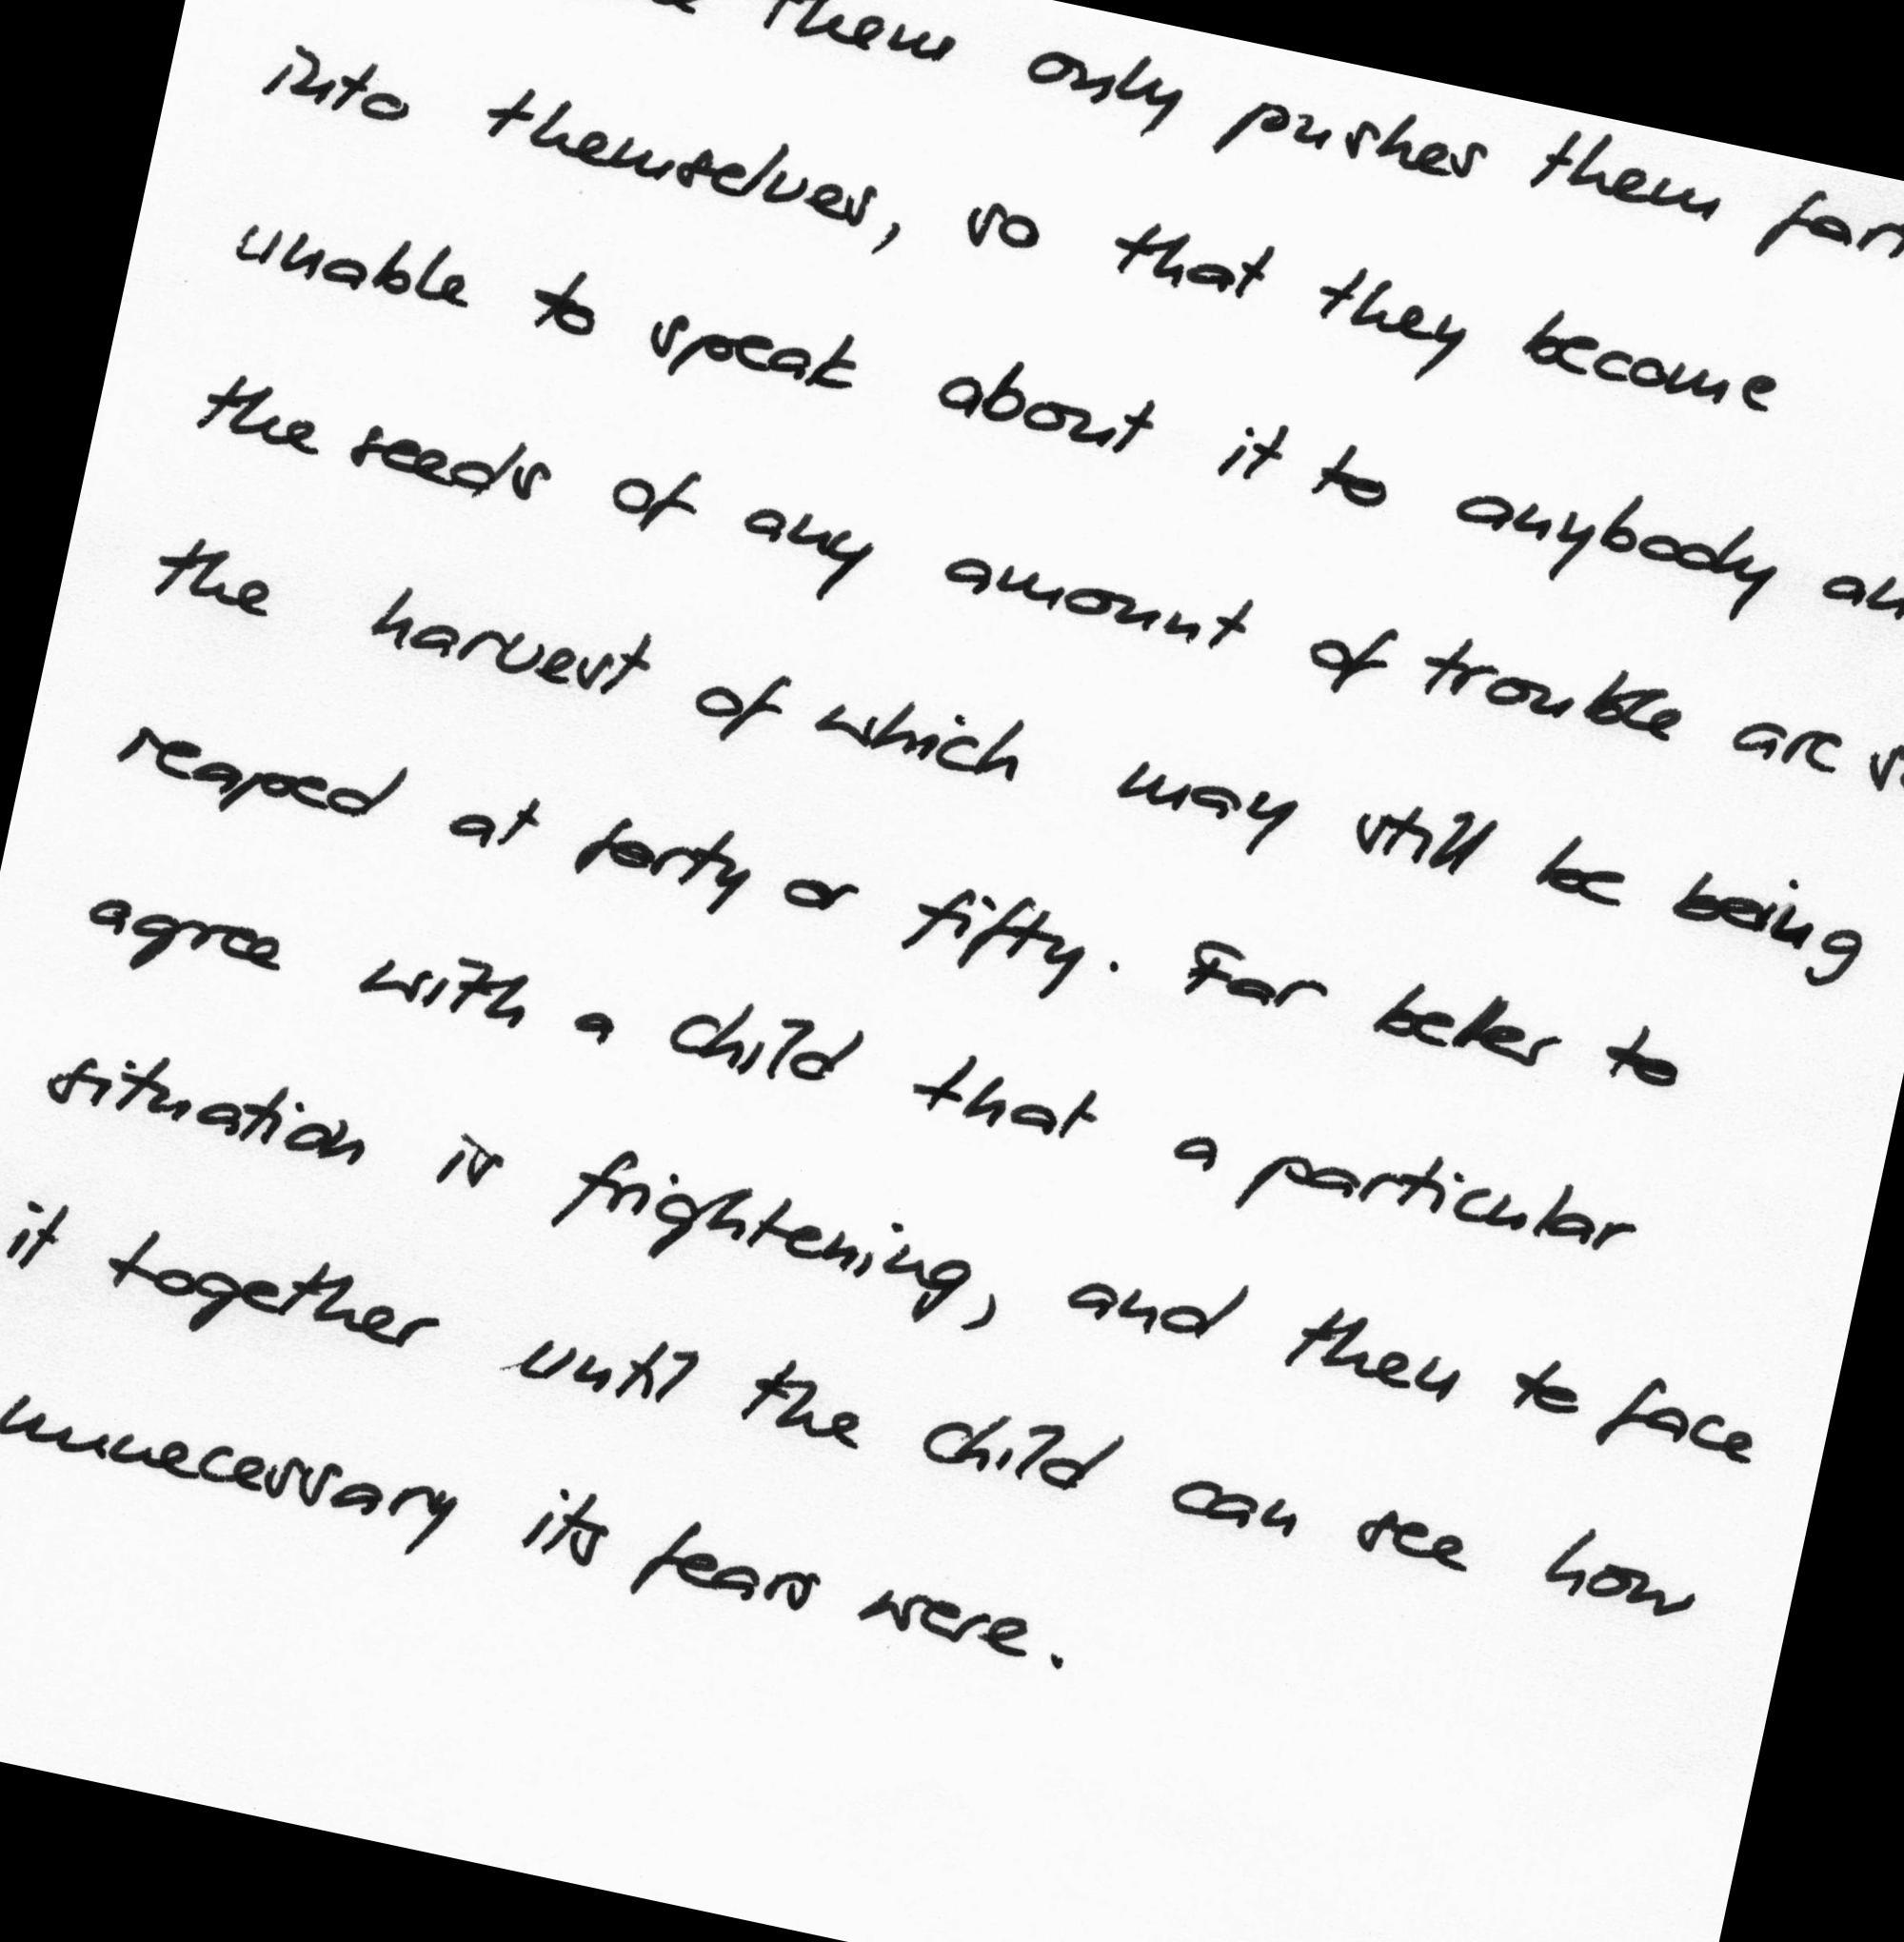 them only pushes them
into themselves, so that they become
unable to speak about it to anybody
the seeds of any amount of trouble are
the harvest of which may still be being
reaped at forty or fifty. Far better to
agree with a child that a particular
situation is frightening, and then to face
it together until the child can see how
unnecessary its fears were.